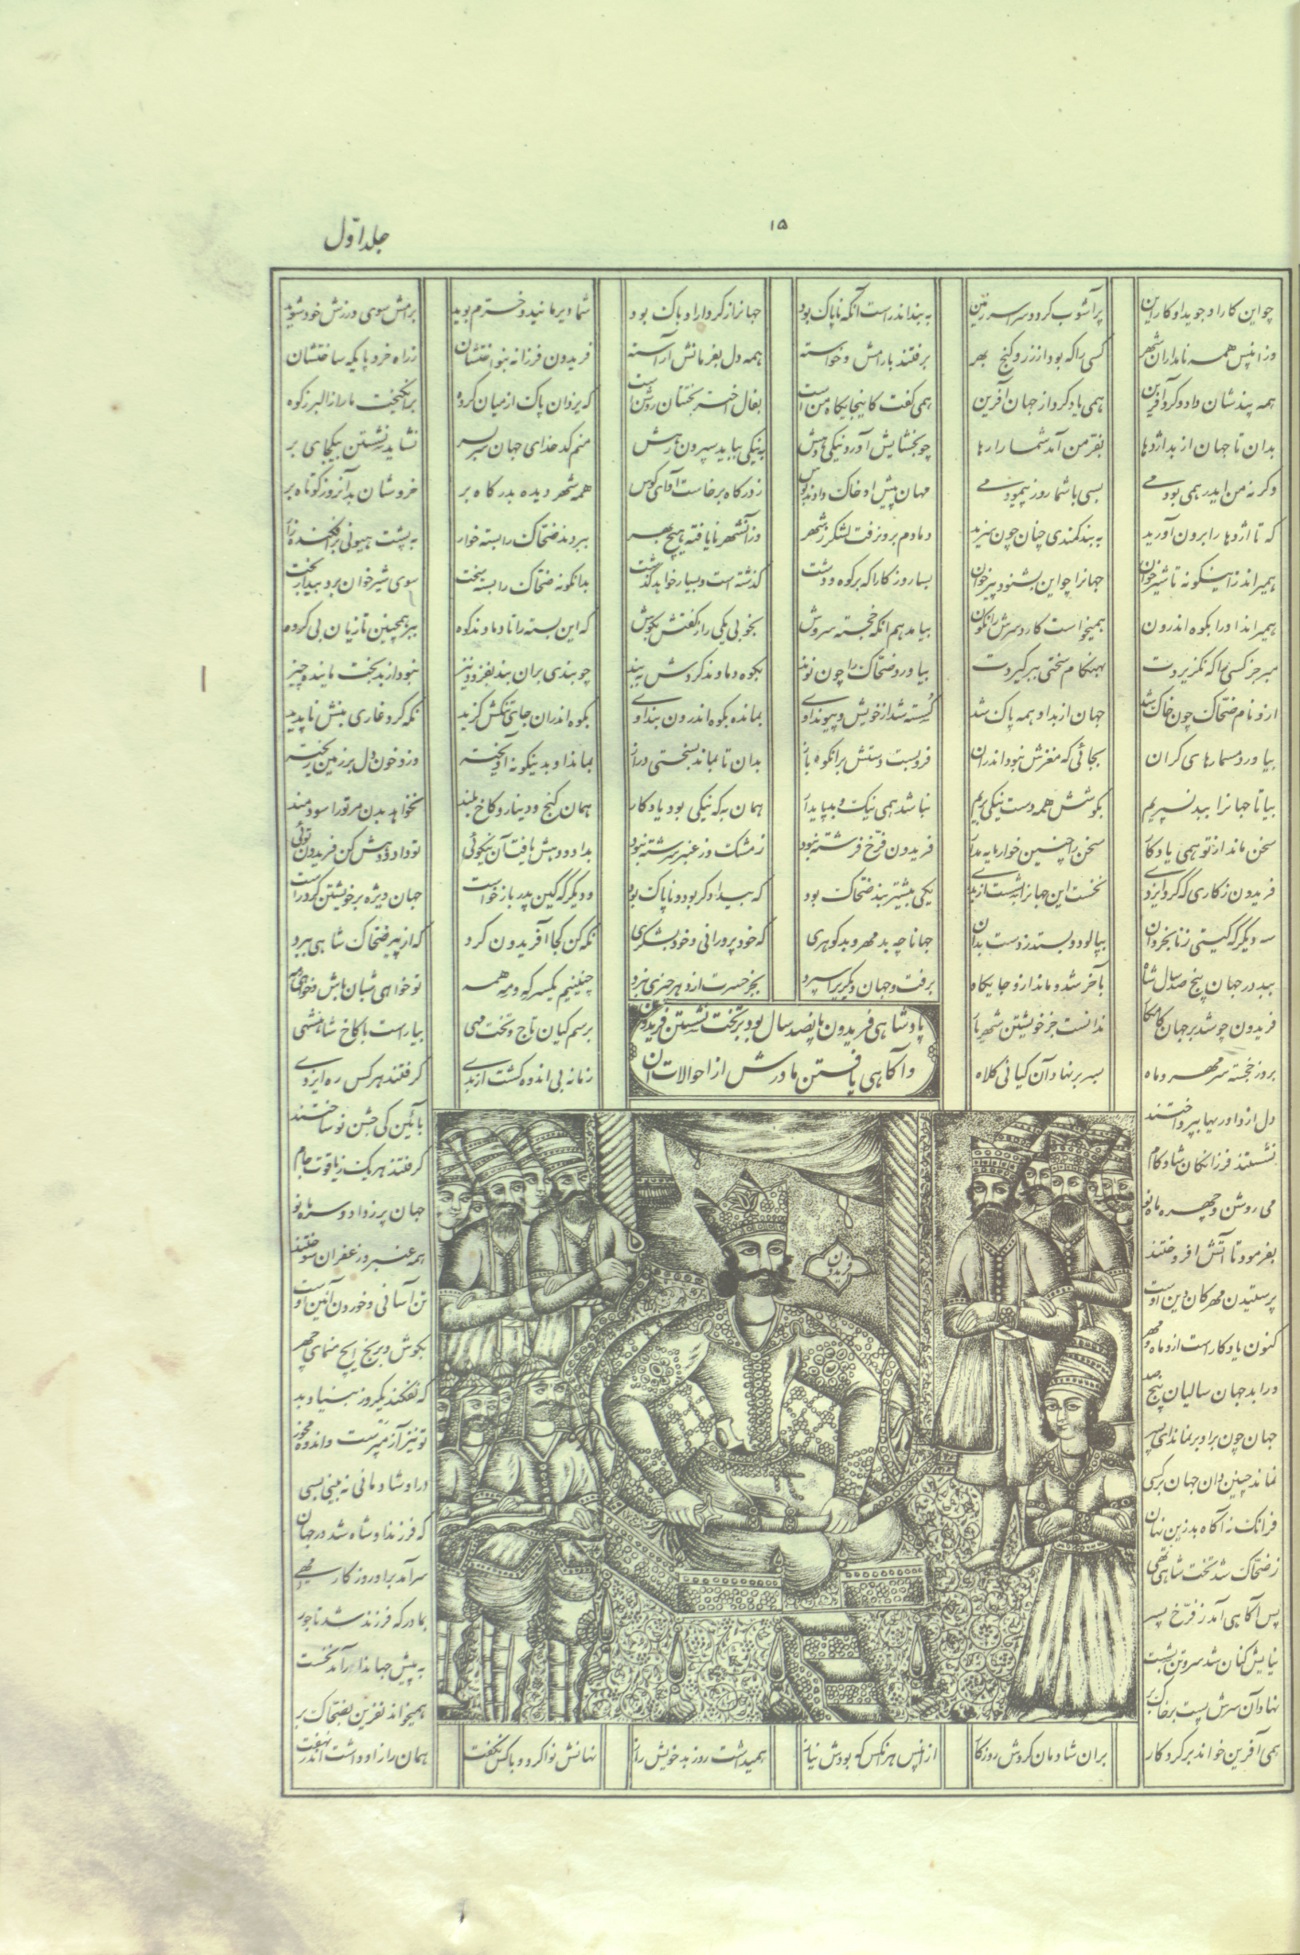 ۱۵
جلد اوّل
چو این کار او جوید او کار این پرآشوب گردد سراسر زمین به بند اندر است آنکه ناپاک بود جهانرا ز کردار او باک بود شما دیر مانید و خرّم بوید برامش سوی ورزش خود شوید
وزانپس همه نامداران شهر کسی را که بود از زر و گنج بهر برفتند بارامش و خواسته همه دل بفرمانش آراسته فریدون فرزانه بنواختشان ز راه خرد پایگه ساختشان
همه پندشان داد و کرد آفرین همی یاد کرد از جهان آفرین همی گفت کاینجایگاه من است بفال اختر بختتان روشن است که یزدان پاک از میان گروه برانگیخت ما را ز البرز کوه
بدان تا جهان از بد اژدها بفر من آمد شما را رها چو بخشایش آورد نیکی دهش به نیکی بباید سپردن رهش منم کدخدای جهان سربسر نشاید نشستن بیکجای بر
وگرنه من ایدر همی بودمی بسی با شما روز پیمودمی مهان پیش او خاک دادند بوس ز درگاه برخاست آوای کوس همه شهر دیده بدرگاه بر خروشان بدآنروز کوتاه بر
که تا اژدها را برون آورید به بند کمندی چنان چون سزید دمادم برون رفت لشکر ز شهر وزآنشهر نایافته هیچ بهر ببردند ضحاک را بسته خوار به پشت هیونی برافکنده زار
همیراند ازاینگونه تا شیرخوان جهانرا چو این بشنود پیر خوان بسا روزگارا که بر کوه و دشت گذشته است و بسیار خواهد گذشت بدانگونه ضحاک را بسته سخت سوی شیرخوان برد بیدار بخت
همیراند او را بکوه اندرون همیخواست کارد سرش را نگون بیامد هم آنگه خجسته سروش بخوبی یکی راز گفتش بگوش که این بسته را تا دماوند کوه ببر همچنین تازیان بی گروه
مبر جز کسی را که نگزیردت بهنگام سختی ببر گیردت بیاورد ضحاک را چون نوند بکوه دماوند کردش ببند چو بندی بران بند بفزود نیز نبود از بد بخت مانیده چیز
ازو نام ضحاک چون خاک شد جهان از بد او همه پاک شد گسسته شد از خویش و پیوند اوی بمانده بکوه اندرون بند اوی بکوه اندران جای تنگش گزید نگه کرد غاری بنش ناپدید
بیاورد مسمارهای گران بجائی که مغزش نبود اندران فرو بست دستش برانکوه باز بدان تا بماند بسختی دراز بماند او بدینگونه آویخته وزو خون دل بر زمین ریخته
بیا تا جهانرا ببد نسپریم بکوشش همه دست نیکی بریم نباشد همی نیک و بد پایدار همان به که نیکی بود یادگار همان گنج و دینار و کاخ بلند نخواهد بدن مر ترا سودمند
سخن ماند از تو همی یادگار سخن را چنین خوارمایه مدار فریدون فرّخ فرشته نبود ز مشک و ز عنبر سرشته نبود بداد و دهش یافت آن نیکوئی تو داد و دهش کن فریدون توئی
فریدون ز کاری که کرد ایزدی نخست این جهانرا بشست از بدی یکی پیشتر بند ضحاک بود که بیدادگر بود و ناپاک بود و دیگر که کین پدر بازخواست جهان ویژه بر خویشتن کرد راست
سه دیگر که گیتی ز نابخردان بپالود و بستد ز دست بدان جهانا چه بد مهر و بد گوهری که خود پرورانی و خود بشکری نگه کن کجا آفریدون گرد که از پیر ضحاک شاهی ببرد
ببد در جهان پنج صد سال شاه بآخر شد و ماند ازو جایگاه برفت و جهان دیگریرا سپرد بجز حسرت از دهر چیزی نبرد چنینیم یکسر که و مه همه تو خواهی شبان باش خواهی رمه
پادشاهی فریدون پانصد سال بود بر تخت نشستن فریدون
و آگاهی یافتن مادرش از احوالات آن
فریدون چو شد بر جهان کامکار ندانست جز خویشتن شهریار برسم کیان تاج و تخت مهی بیاراست با کاخ شاهنشهی
بروز خجسته سر مهر و ماه بسر بر نهاد آن کیانی کلاه زمانه بی اندوه گشت از بدی گرفتند هر کس ره ایزدی
دل از داوریها بپرداختند بآئین کی جشن نو ساختند
نشستند فرزانگان شادکام گرفتند هر یک ز یاقوت جام
می روشن و چهره ماه نو جهان پر ز داد و سر ماه نو
بفرمود تا آتش افروختند همه عنبر و زعفران سوختند
پرستیدن مهرکان دین اوست تن آسانی و خوردن آئین اوست
کنون یادگار است ازو ماه مهر بکوش و برنج ایچ منمای چهر
ورا بد جهان سالیان پنج صد که نفکند یکروز بنیاد بد
جهان چون برو بر نماند ای پسر تو نیز آز مپرست و اندوه مخور
نماند چنین دان جهان بر کسی در او شادمانی نه بینی بسی
فرانک نه آگاه بد زین نهان که فرزند او شاه شد در جهان
ز ضحاک شد تخت شاهی تهی سرآمد برو روزگار مهی
پس آگاهی آمد ز فرّخ پسر بمادر که فرزند شد تاجور
نیایش کنان شد سر و تن بشست به پیش جهاندار آمد نخست
نهاد آن سرش پست بر خاک بر همیخواند نفرین بضحاک بر
همی آفرین خواند بر کردگار بران شادمان گردش روزگار ازانپس هر آنکس که بودش نیاز همیداشت روز بد خویش راز نهانش نوا کرد و با کس نگفت همان راز او داشت اندر نهفت
فریدون